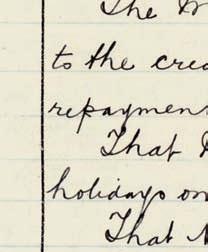 The
to the
repayment
That
holidays on
That